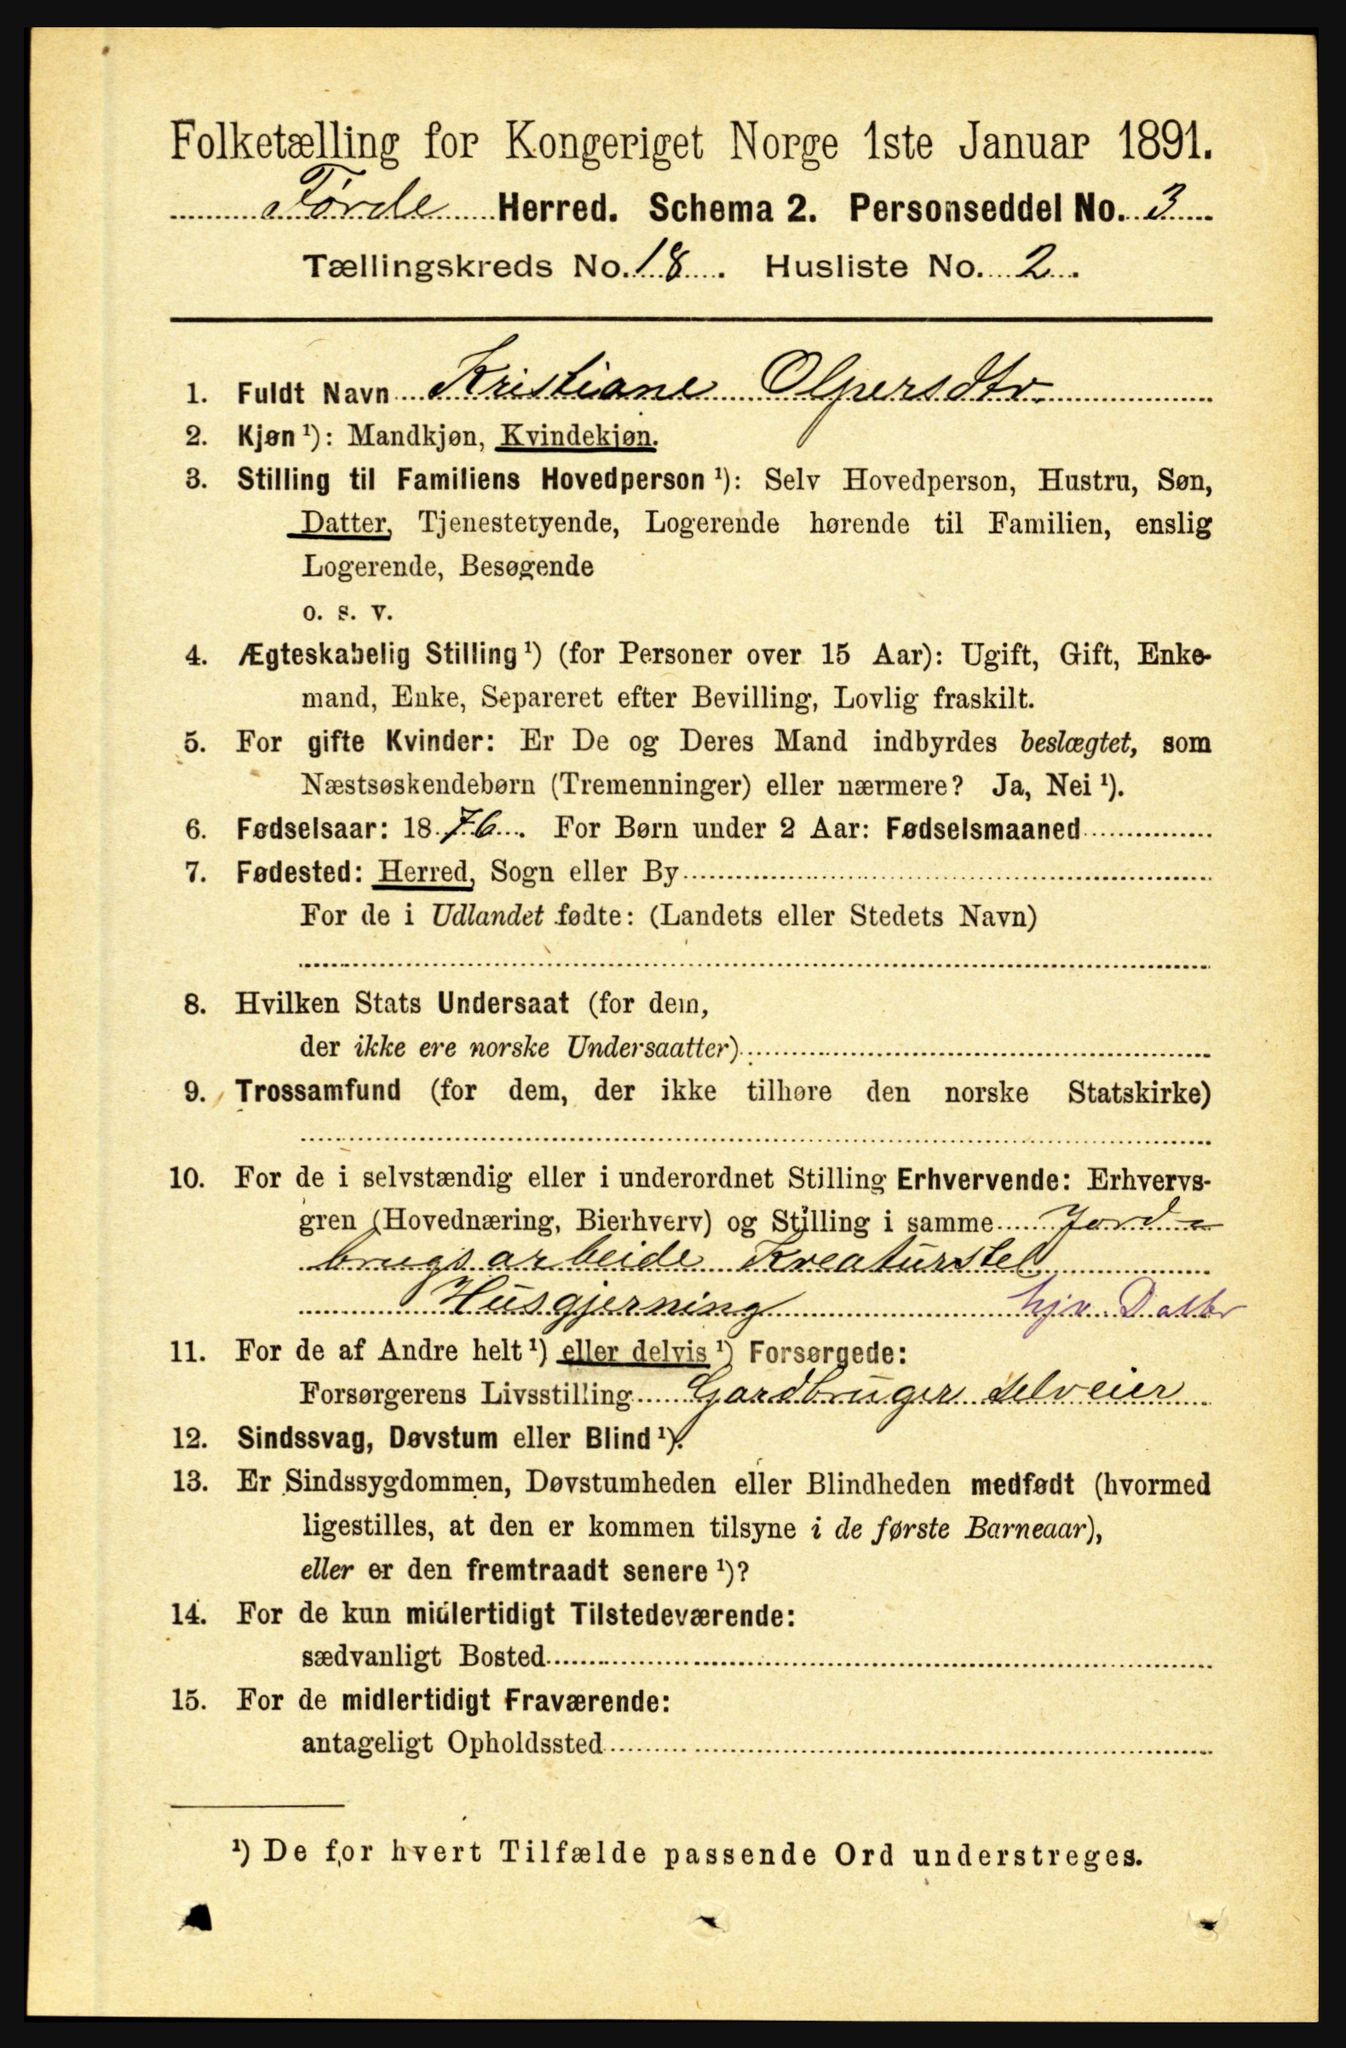 Folketælling for Kongeriget Norge 1ste Januar 1891.
Førde Herred. Schema 2. Personseddel No. 3
Tællingskreds No. 18. Husliste No. 2.
1. Fuldt Navn Kristiane Olpersdtr.
2. Kjøn ¹): Mandkjøn, Kvindekjøn.
3. Stilling til Familiens Hovedperson ¹): Selv Hovedperson, Hustru, Søn,
Datter, Tjenestetyende, Logerende hørende til Familien, enslig
Logerende, Besøgende
o. s. v.
4. Ægteskabelig Stilling ¹) (for Personer over 15 Aar): Ugift, Gift, Enke-
mand, Enke, Separeret efter Bevilling, Lovlig fraskilt.
5. For gifte Kvinder: Er De og Deres Mand indbyrdes beslægtet, som
Næstsøskendebørn (Tremenninger) eller nærmere? Ja, Nei ¹).
6. Fødselsaar: 1876. For Børn under 2 Aar: Fødselsmaaned
7. Fødested: Herred, Sogn eller By
For de i Udlandet fødte: (Landets eller Stedets Navn)
8. Hvilken Stats Undersaat (for dem,
der ikke ere norske Undersaatter)
9. Trossamfund (for dem, der ikke tilhøre den norske Statskirke)
10. For de i selvstændig eller i underordnet Stilling Erhvervende: Erhvervs-
gren (Hovednæring, Bierhverv) og Stilling i samme Jord-
brugsarbeide Kreaturstel
Husgjerning hjv. Datter
11. For de af Andre helt ¹) eller delvis ¹) Forsørgede:
Forsørgerens Livsstilling Gardbruger selveier
12. Sindssvag, Døvstum eller Blind ¹).
13. Er Sindssygdommen, Døvstumheden eller Blindheden medfødt (hvormed
ligestilles, at den er kommen tilsyne i de første Barneaar),
eller er den fremtraadt senere ¹)?
14. For de kun midlertidigt Tilstedeværende:
sædvanligt Bosted
15. For de midlertidigt Fraværende:
antageligt Opholdssted
¹) De for hvert Tilfælde passende Ord understreges.